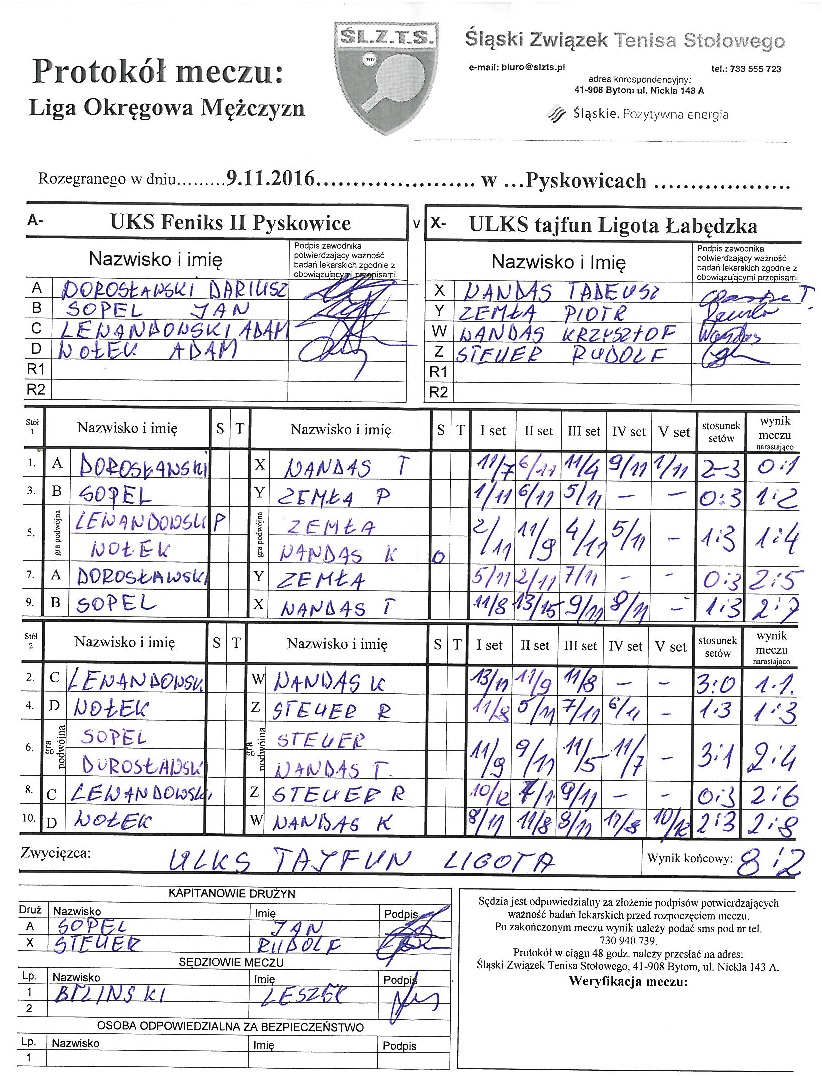 ŚL.Z.T.S.
Protokół meczu:
Liga Okręgowa Mężczyzn
Śląski Związek Tenisa Stołowego
e-mail: biuro@slzts.pl tel.: 733 555 723
adres korespondencyjny:
41-908 Bytom ul. Nickla 143 A
Śląskie. Pozytywna energia
Rozegranego w dniu.........9.11.2016......................... w ...Pyskowicach .....................
A- UKS Feniks II Pyskowice v X- ULKS tajfun Ligota Łabędzka
Nazwisko i imię Podpis zawodnika potwierdzający ważność badań lekarskich zgodnie z obowiązującymi przepisami Nazwisko i Imię Podpis zawodnika potwierdzający ważność badań lekarskich zgodnie z obowiązującymi przepisami
A DOROSŁAWSKI DARIUSZ X WANDAS TADEUSZ
B SOPEL JAN Y ZEMŁA PIOTR
C LEWANDOWSKI ADAM W WANDAS KRZYSZTOF
D WOŁEK ADAM Z STEUER RUDOLF
R1 R1
R2 R2
Stół 1 Nazwisko i imię S T Nazwisko i imię S T I set II set III set IV set V set stosunek setów wynik meczu narastająco
1. A DOROSŁAWSKI X WANDAS T 11/7 6/11 11/4 9/11 1/11 2-3 0:1
3. B SOPEL Y ZEMŁA P 1/11 6/11 5/11 - - 0:3 1:2
5. gra podwójna LEWANDOWSKI P gra podwójna ZEMŁA 2/11 11/9 4/11 5/11 - 1:3 1:4
WOŁEK WANDAS K O
7. A DOROSŁAWSKI Y ZEMŁA 5/11 2/11 7/11 - - 0:3 2:5
9. B SOPEL X WANDAS T 11/8 13/15 9/11 8/11 - 1:3 2:7
Stół 2 Nazwisko i imię S T Nazwisko i imię S T I set II set III set IV set V set stosunek setów wynik meczu narastająco
2. C LEWANDOWSKI W WANDAS K 13/11 11/9 11/8 - - 3:0 1-1.
4. D WOŁEK Z STEUER R 11/8 5/11 7/11 6/11 - 1:3 1:3
6. gra podwójna SOPEL gra podwójna STEUER 11/9 9/11 11/5 11/7 - 3:1 2:4
DOROSŁAWSKI WANDAS T.
8. C LEWANDOWSKI Z STEUER R 10/12 7/11 9/11 - - 0:3 2:6
10. D WOŁEK W WANDAS K 8/11 11/8 8/11 11/8 10/12 2:3 2:8
Zwycięzca: ULKS TAJFUN LIGOTA Wynik końcowy: 8:2
KAPITANOWIE DRUŻYN
Druż Nazwisko Imię Podpis
A SOPEL JAN
X STEUER RUDOLF
SĘDZIOWIE MECZU
Lp. Nazwisko Imię Podpis
1 BILINSKI LESZEK
2
OSOBA ODPOWIEDZIALNA ZA BEZPIECZEŃSTWO
Lp. Nazwisko Imię Podpis
1
Sędzia jest odpowiedzialny za złożenie podpisów potwierdzających
ważność badań lekarskich przed rozpoczęciem meczu.
Po zakończonym meczu wynik należy podać sms pod nr tel.
730 940 739.
Protokół w ciągu 48 godz. należy przesłać na adres:
Śląski Związek Tenisa Stołowego, 41-908 Bytom, ul. Nickla 143 A.
Weryfikacja meczu: